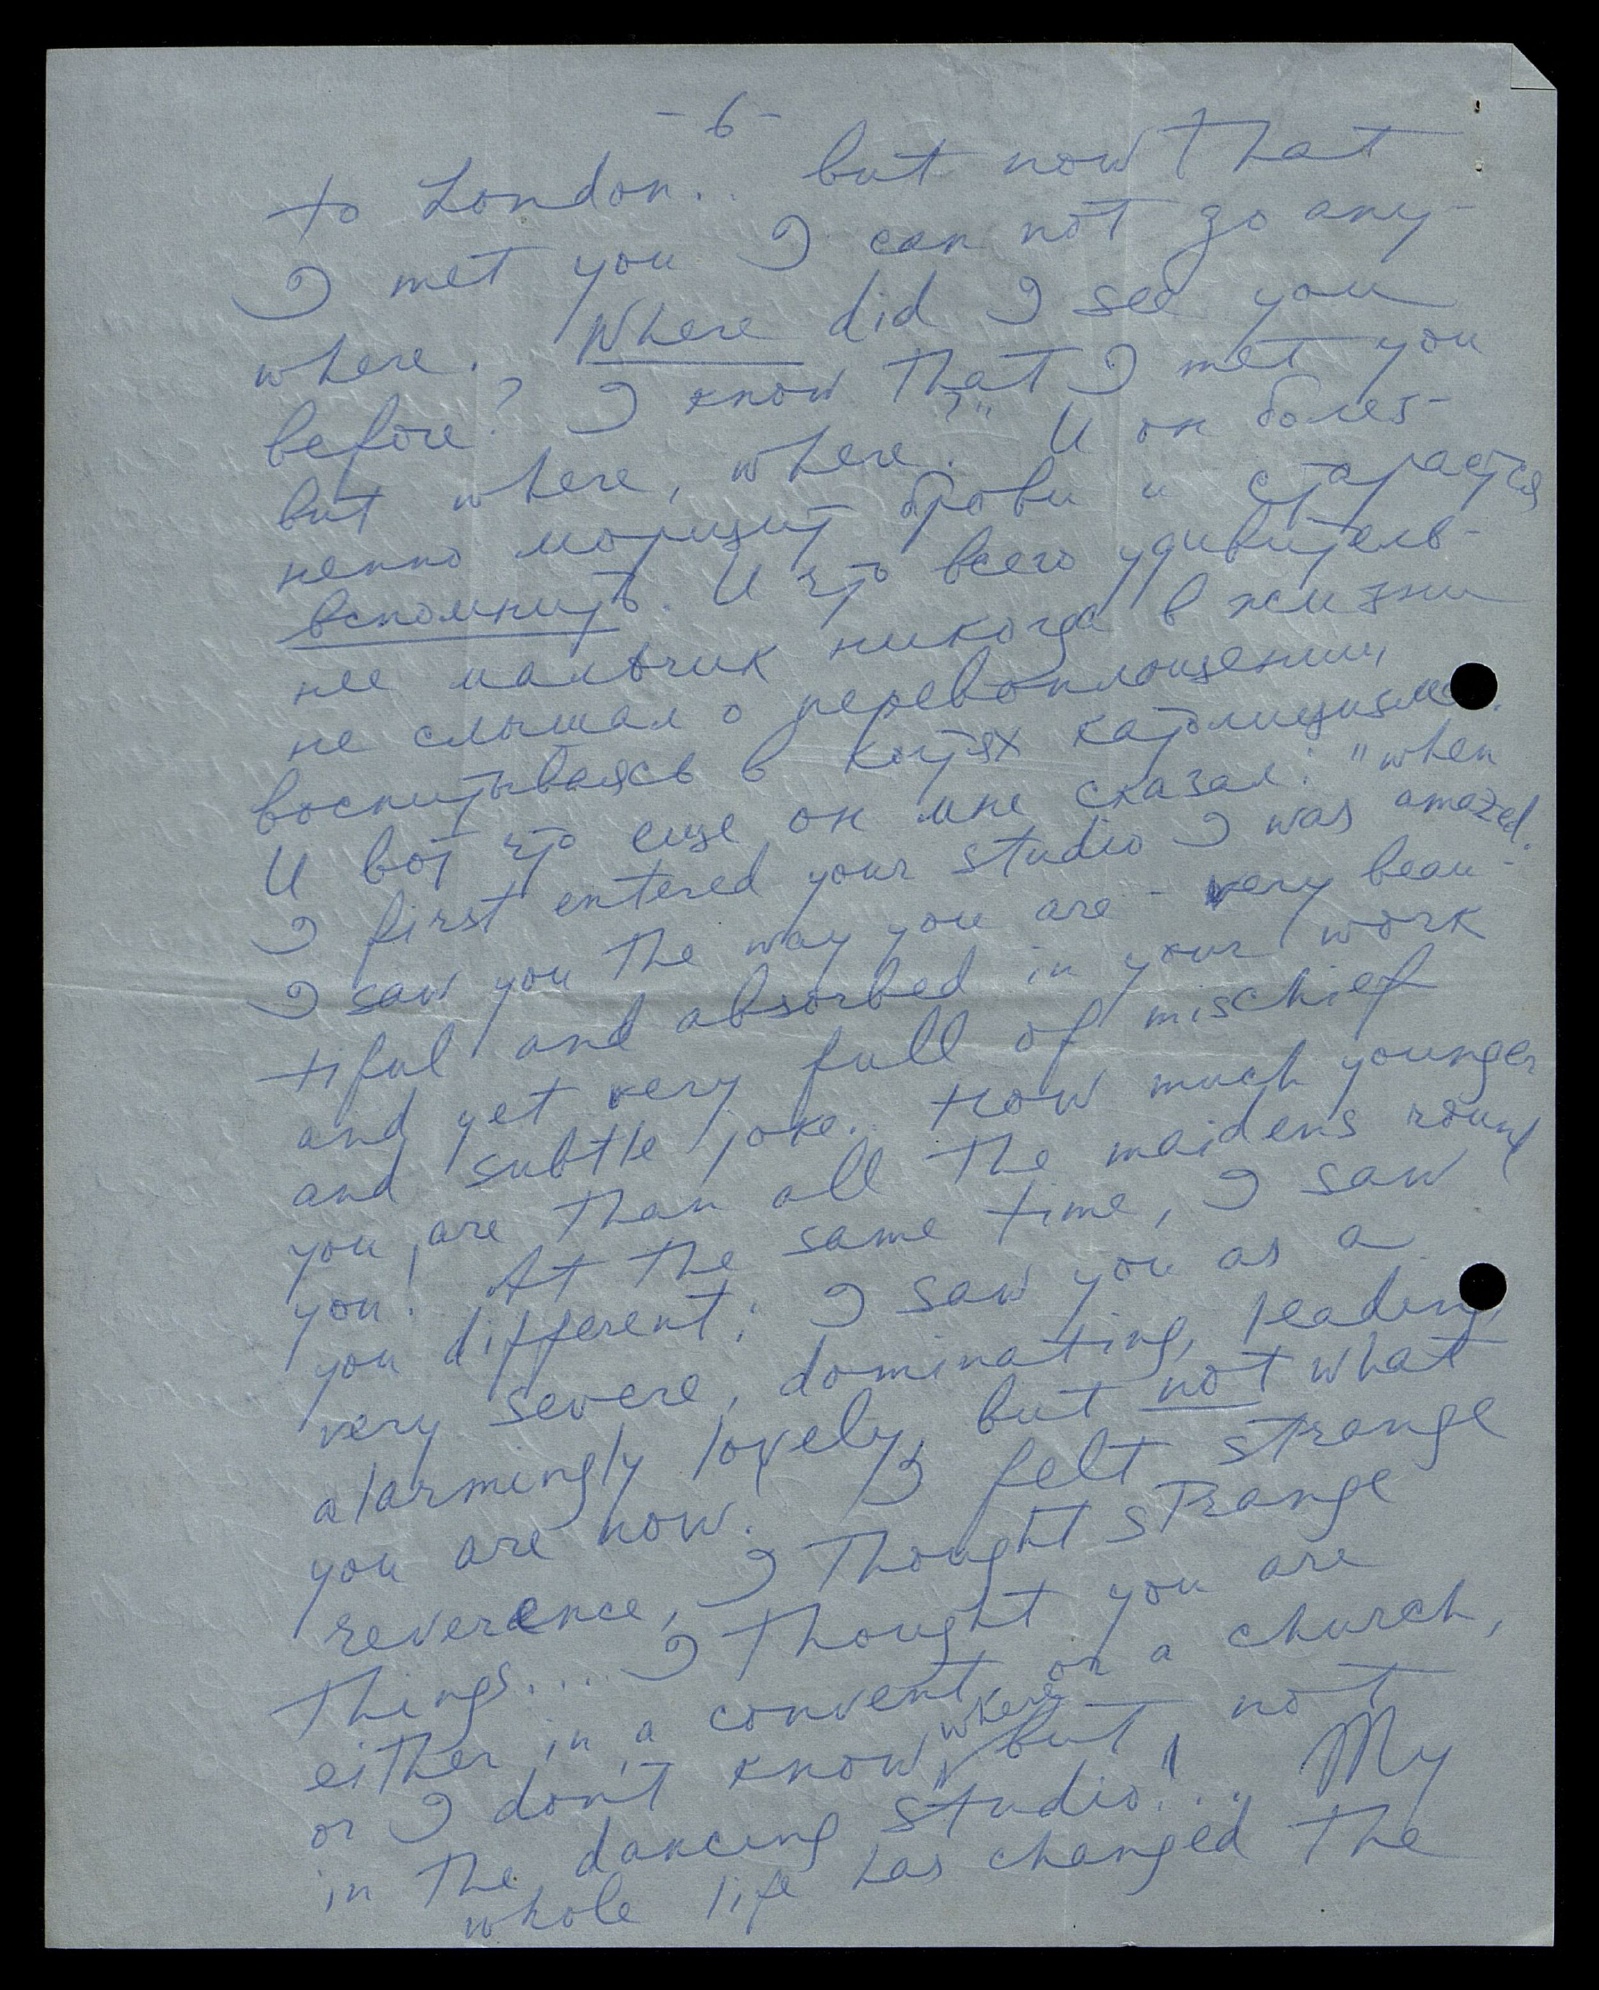 -6-
to London.. but now that
I met you I can not go any-
where. Where did I see you
before? I know that I met you
but where, where?" И он болез-
ненно морщит брови и старается
вспомнить. И что всего удивитель-
нее мальчик никогда в жизни
не слышал о перевоплощении,
воспитываясь в когтях католицизма.
И вот что еще он мне сказал: "when
I first entered your studio I was amazed.
I saw you the way you are - very beau-
tiful and absorbed in your work
and yet very full of mischief
and subtle joke.. How much younger
you are than all the maidens round
you! At the same time, I saw
you different; I saw you as a
very severe, dominating, leading,
alarmingly lovely, but not what
you are now. I felt strange
reverence, I thought strange
things.... I thought you are
either in a convent, or a church,
or I don't know where, but not
in the dancing studio!"... My
whole life has changed the